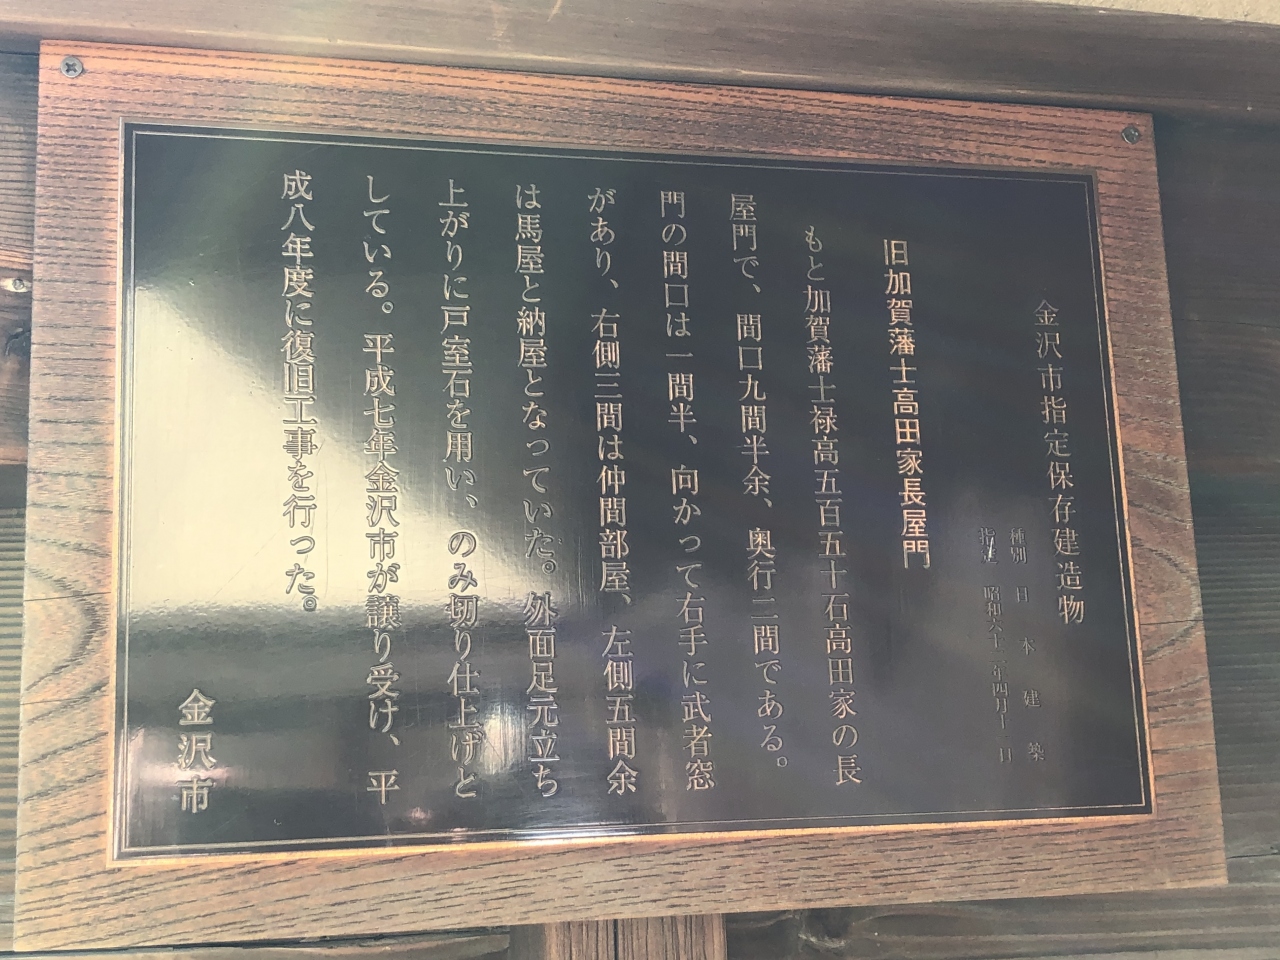 金沢市指定保存建造物
種別　日本建築
指定　昭和六十二年四月十一日
旧加賀藩士高田家長屋門
もと加賀藩士禄高五百五十石高田家の長
屋門で、間口九間半余、奥行二間である。
門の間口は一間半、向かって右手に武者窓
があり、右側三間は仲間部屋、左側五間余
は馬屋と納屋となっていた。外面足元立ち
上がりに戸室石を用い、のみ切り仕上げと
している。平成七年金沢市が譲り受け、平
成八年度に復旧工事を行った。
金沢市